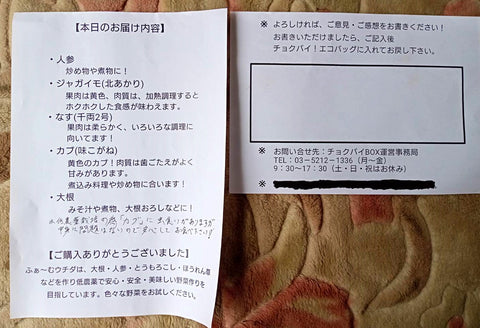 【本日のお届け内容】
・人参
炒め物や煮物に！
・ジャガイモ(北あかり)
果肉は黄色、肉質は、加熱調理すると
ホクホクした食感が味わえます。
・なす(千両2号)
果肉は柔らかく、いろいろな調理に
向いてます！
・カブ(味こがね)
黄色のカブ！肉質は歯ごたえがよく
甘みがあります。
煮込み料理や炒め物に合います！
・大根
みそ汁や煮物、大根おろしなどに！
「カブ」に虫食いがありますが
中身に問題はないので安心してお食べ下さい！
【ご購入ありがとうございました】
ふぁ～むウチダは、大根・人参・とうもろこし・ほうれん草
などを作り低農薬で安心・安全・美味しい野菜作りを
目指しています。色々な野菜をお試しください。
※ よろしければ、ご意見・ご感想をお書きください！
お書きいただけましたら、ご記入後
チョクバイ！エコバッグに入れてお戻し下さい。
※ お問い合せ先：チョクバイBOX運営事務局
TEL：03－5212－1336（月～金）
9：30～17：30（土・日・祝はお休み）
※